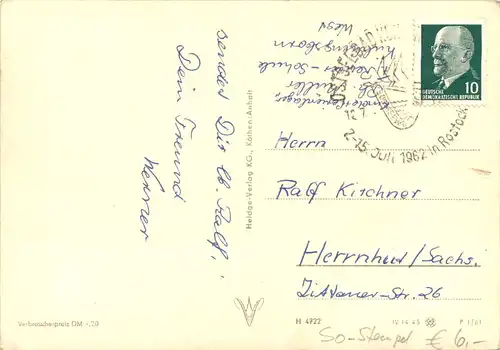 sendet Dir lb. Ralf,
Dein Freund
Werner
Kinderferienlager
Schule
Kühlungsborn
West
Verbraucherpreis DM -.20
Heldge-Verlag KG., Köthen/Anhalt
2-15. Juli 1962 in Rostock
DEUTSCHE
DEMOKRATISCHE REPUBLIK
10
Herrn
Ralf Kirchner
Herrnhut/Sachs.
Zittauer-Str. 26
H 4922
IV 14 45
P 1/61
So-Stempel € 6,-